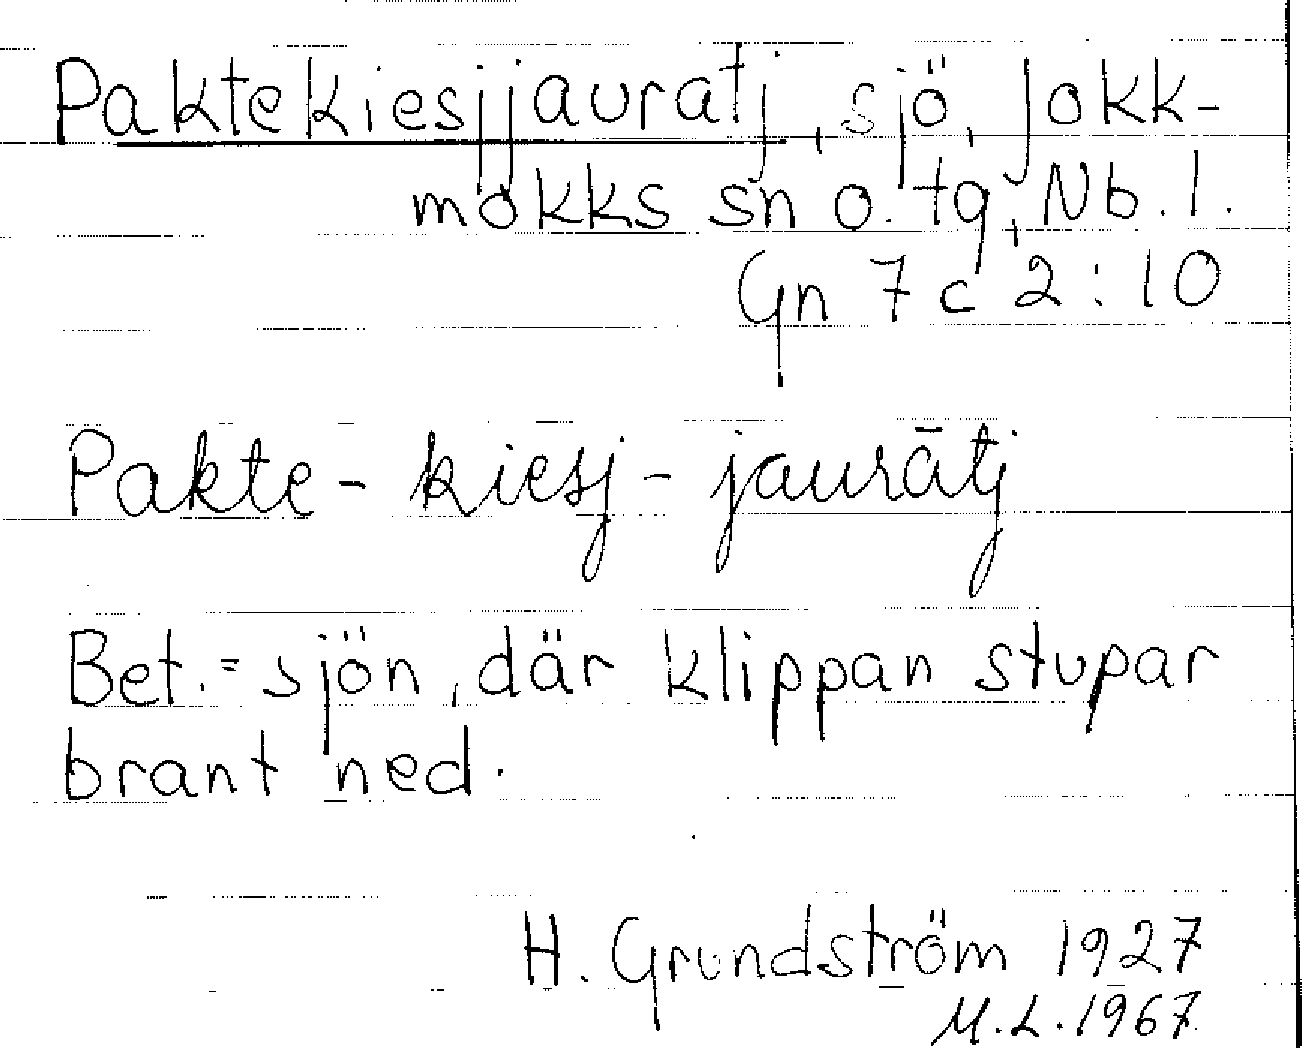 Paktekiesjjauratj, sjö, Jokk-
mokks sn o. tg, Nb. l.
Gn 7 c 2:10
Pakte-kiesj-jaurātj
Bet.= sjön, där klippan stupar
brant ned.
H. Grundström 1927
M.L. 1967